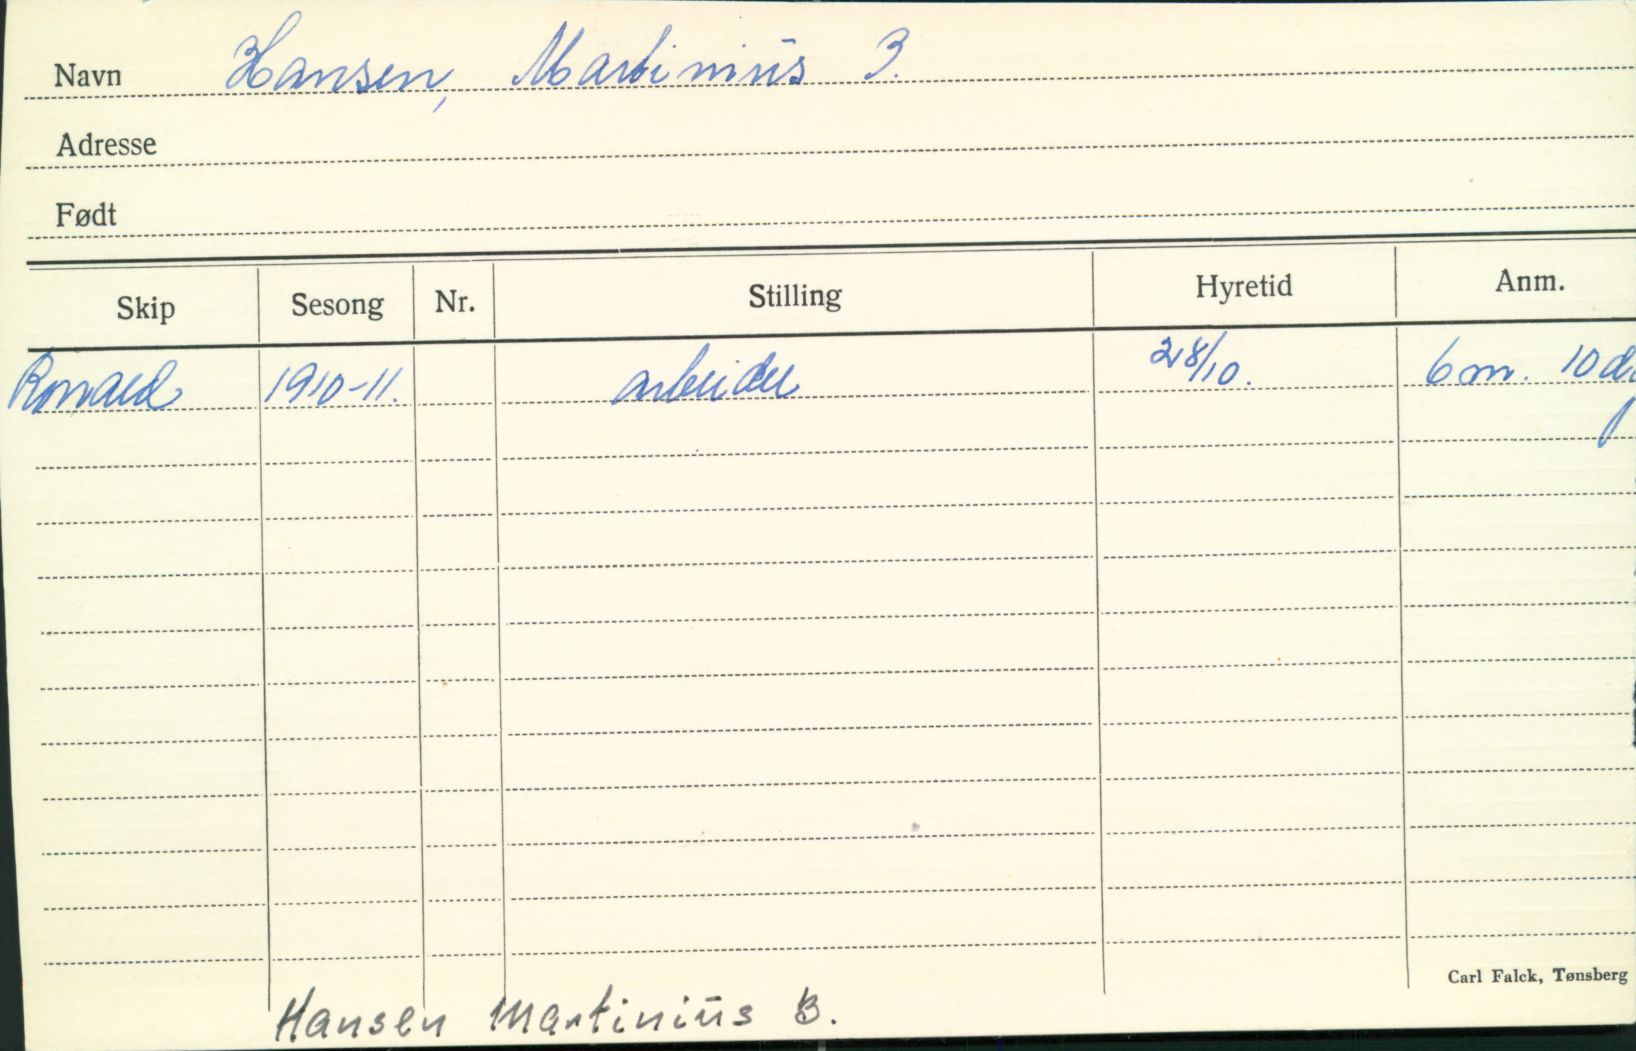 Navn Hansen, Martinius B.
Adresse
Født
Skip Sesong Nr. Stilling Hyretid Anm.
Ronald 1910-11. arbeider 28/10. 6 m. 10 d.
Carl Falck, Tønsberg
Hansen Martinius B.